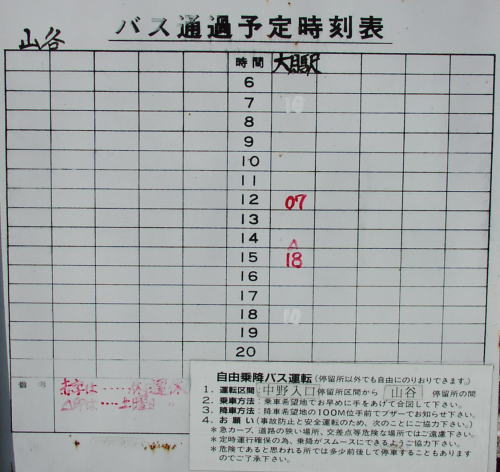 山谷
バス通過予定時刻表
時間 大月駅
6
7 10
8
9
10
11
12 07
13
14
△
15 18
16
17
18 10
19
20
備考
赤字は‥‥休運休
△印は‥‥土曜
自由乗降バス運転(停留所以外でも自由にのりおりできます。)
1. 運転区間:中野入口停留所区間から 山谷 停留所の間
2. 乗車方法:乗車希望地でお早めに手をあげて合図して下さい。
3. 降車方法:降車希望地の100M位手前でブザーでお知らせ下さい。
4. お願い(事故防止と安全運転のため、次のことにご協力下さい。)
*急カーブ、道路の狭い場所、交差点等危険な場所ではご遠慮下さい。
*定時運行確保の為、乗降がスムースにできるようご協力下さい。
*危険であると思われる所では多少前後して停車することもありますのでご了承下さい。